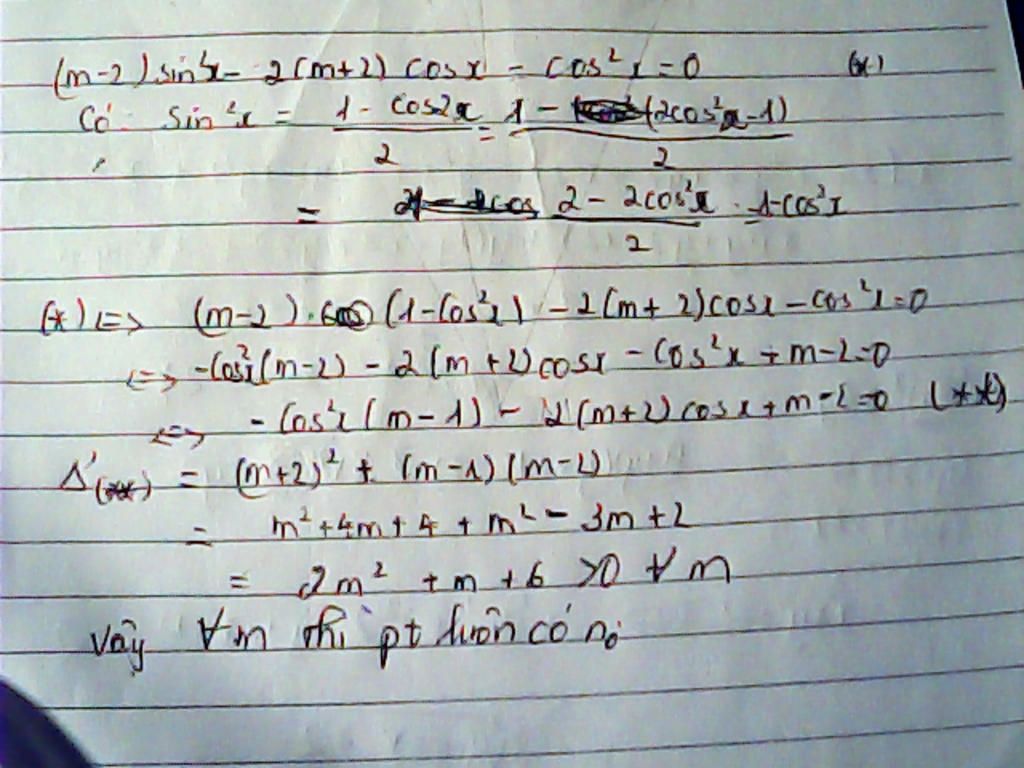 (m-2) sin²x - 2(m+2) cosx - cos²x = 0 (*)
Có: sin²x = (1 - cos2x)/2 = (1 - (2cos²x - 1))/2
= (2 - 2cos²x)/2 = 1-cos²x
(*) <=> (m-2).(1-cos²x) - 2(m+2)cosx - cos²x = 0
<=> -cos²x(m-2) - 2(m+2)cosx - cos²x + m-2=0
<=> - cos²x(m-1) - 2(m+2)cosx + m-2=0 (**)
Δ'(**) = (m+2)² + (m-1)(m-2)
= m² + 4m + 4 + m² - 3m + 2
= 2m² + m + 6 >0 ∀m
Vậy ∀m thì pt luôn có no